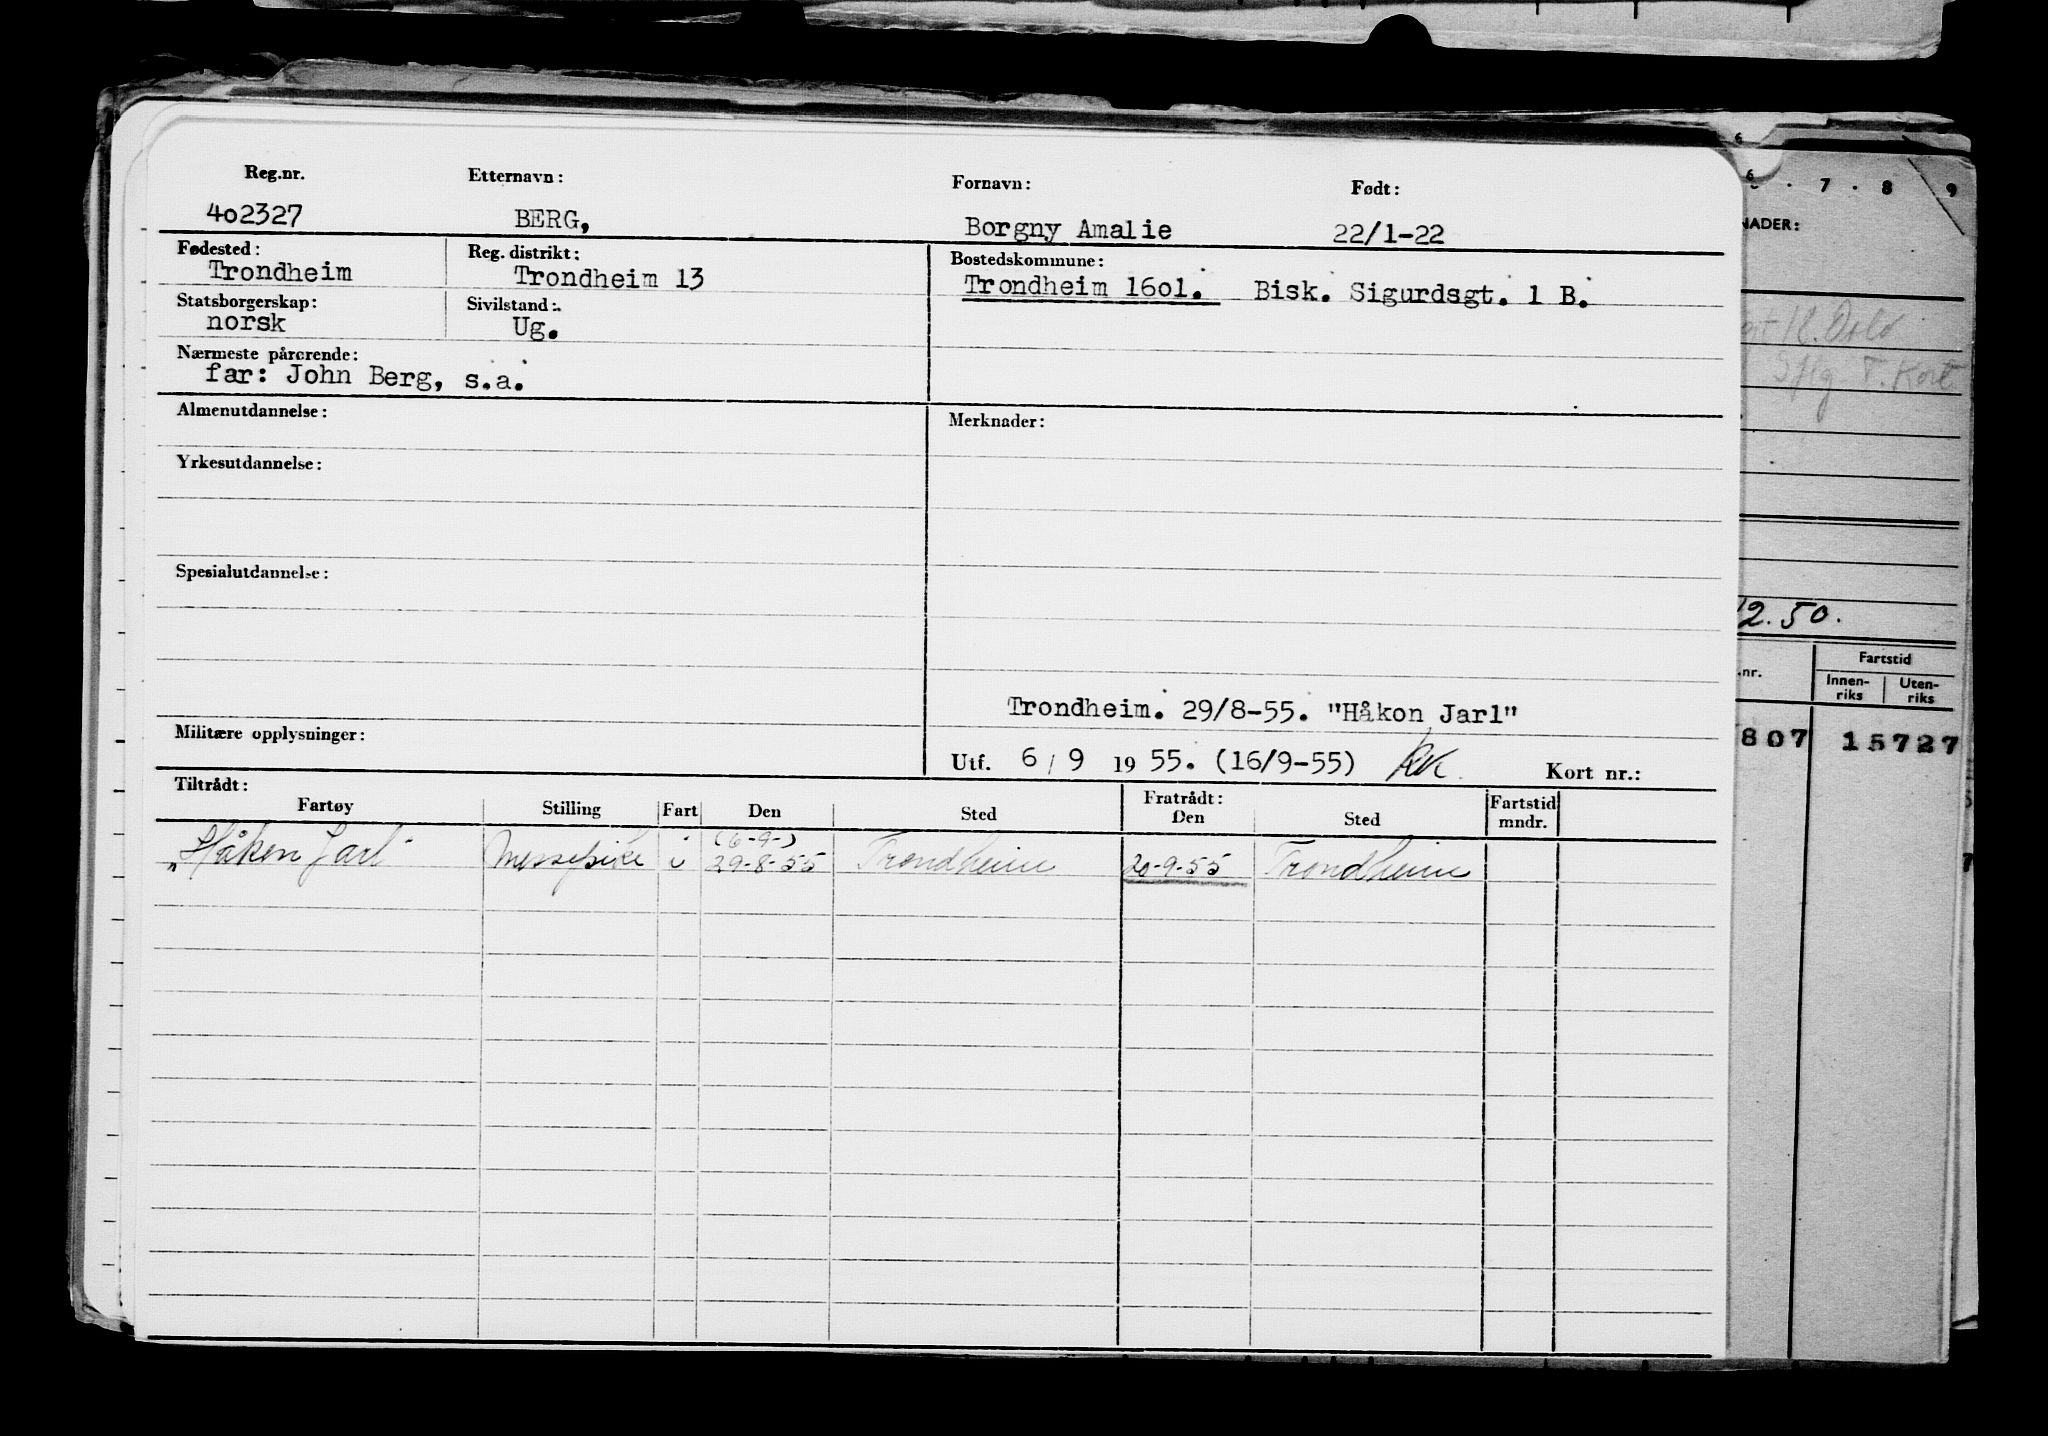 Reg.nr. Etternavn: Fornavn: Født:
402327 BERG, Borgny Amalie 22/1-22
Fødested: Reg. distrikt: Bostedskommune:
Trondheim Trondheim 13 Trondheim 1601. Bisk. Sigurdsgt. 1 B.
Statsborgerskap: Sivilstand:
norsk Ug.
Nærmeste pårørende:
far: John Berg, s.a.
Almenutdannelse: Merknader:
Yrkesutdannelse:
Spesialutdannelse:
Trondheim. 29/8-55. "Håkon Jarl"
Militære opplysninger:
Utf. 6/9 1955. (16/9-55) KK. Kort nr.:
Tiltrådt: Fratrådt:
Fartøy Stilling Fart Den Sted Den Sted Fartstid mndr.
(6-9-)
"Håken Jarl" Messepike i 29-8-55 Trondheim 20-9-55 Trondheim
6 7 8 9
NADER:
K. Oslo
T. Kort
12.50.
.nr. Fartstid
Innen-riks Uten-riks
807 15727